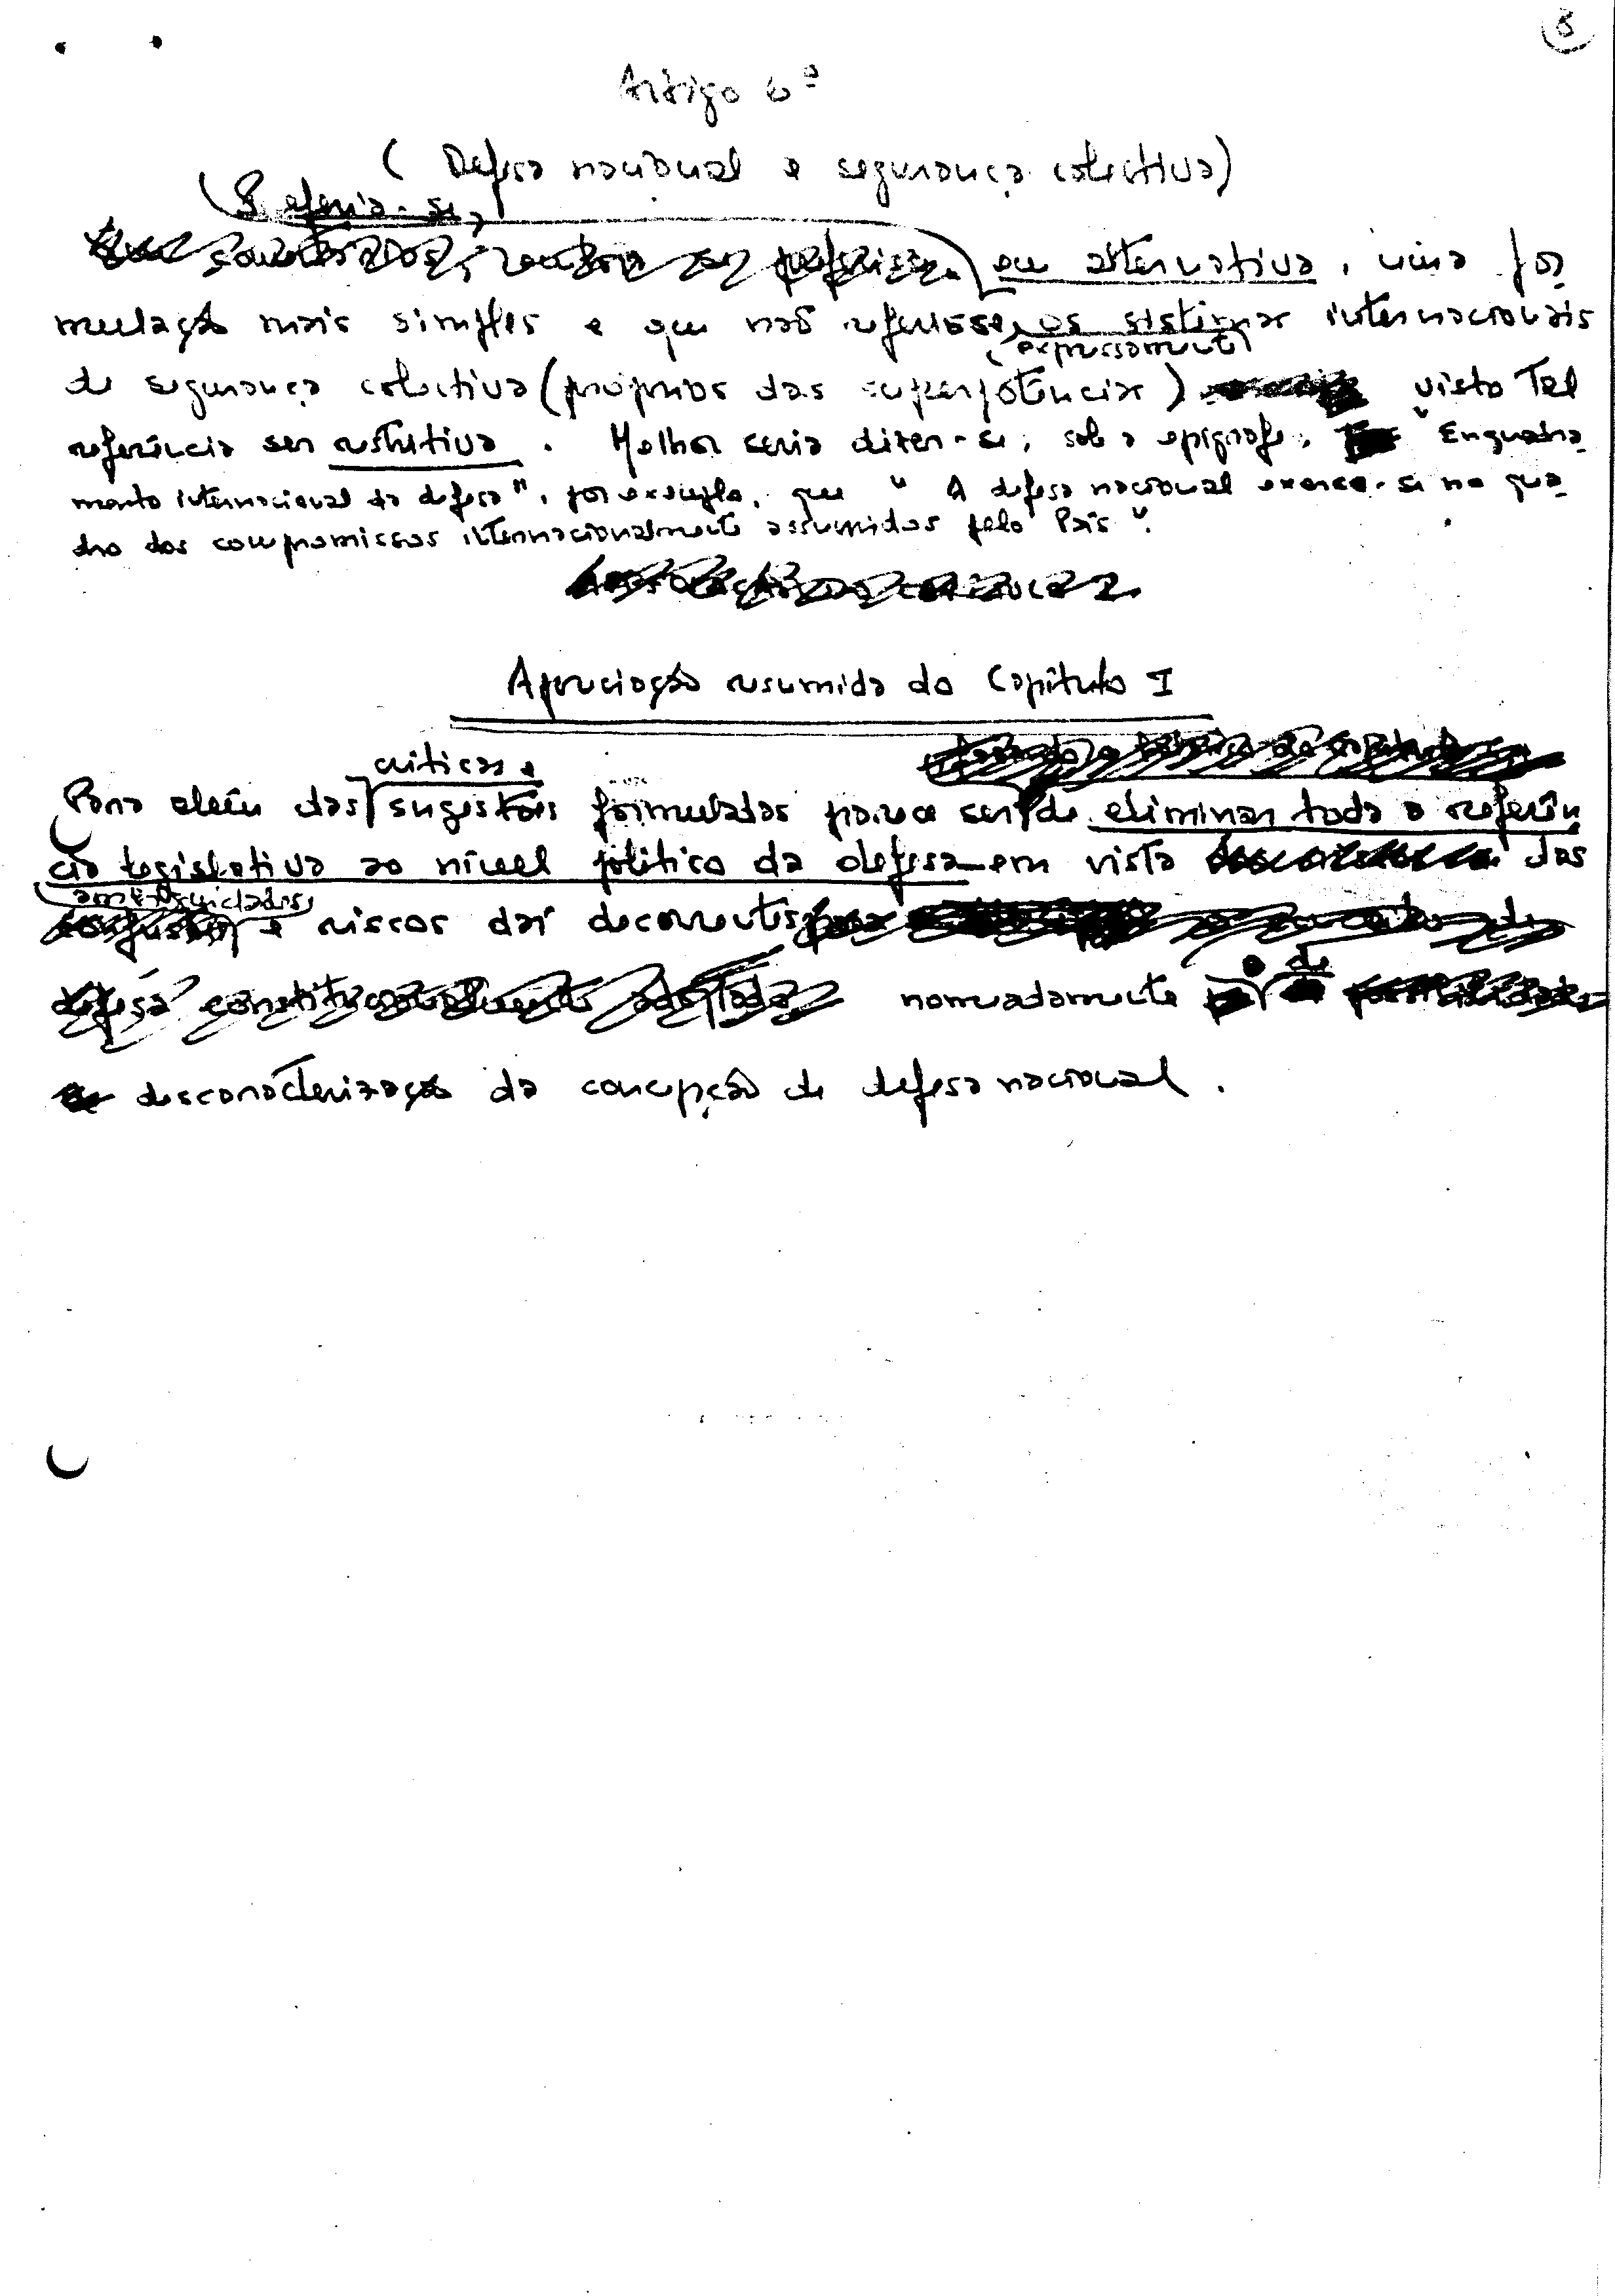 8
Artigo 6º
(Defesa nacional e segurança colectiva)
Preferia-se,
em alternativa, uma for
mulação mais simples e que não referisse, os sistemas internacionais
expressamente
de segurança colectiva (próprios das superpotências) visto Tal
referência ser restritiva. Melhor seria dizer-se, sob a epígrafe, "Enquadra
mento internacional da defesa", por exemplo, que "A defesa nacional exerce-se no qua
dro dos compromissos internacionalmente assumidos pelo País".
Apreciação resumida do Capítulo I
críticas e
Para além das sugestões formuladas parece ser de eliminar toda a referên
cia legislativa ao nível político da defesa em vista das
ambiguidades
e riscos daí decorrentes
nomeadamente de
descaracterização da concepção de defesa nacional.